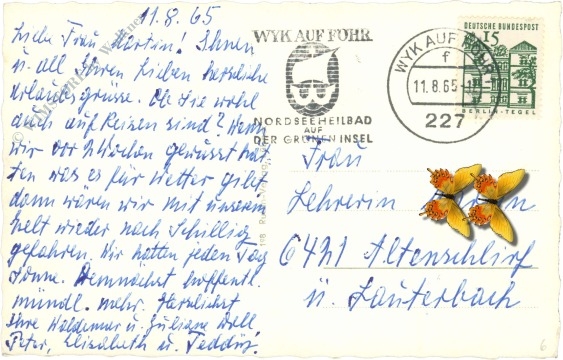 11.8.65
Liebe Frau Martin! Ihnen
u. all Ihren Lieben herzliche
Urlaubsgrüsse. Ob Sie wohl
auch auf Reisen sind? Wenn
wir vor Wochen gewusst hät
ten was es für Wetter gibt
dann wären wir mit unserem
Zelt wieder nach Schillig
gefahren. Wir hatten jeden Tag
Sonne. Demnächst hoffentl.
mündl. mehr. Herzlichst
Ihre Waldemar u. Juliane
Peter, Elisabeth u.
WYK AUF FÖHR
NORDSEEHEILBAD
AUF
DER GRÜNEN INSEL
WYK AUF FÖHR 1
f
11.8.65
227
DEUTSCHE BUNDESPOST
15
BERLIN-TEGEL
Frau
Lehrerin
6421 Altenschlirf
ü. Lauterbach